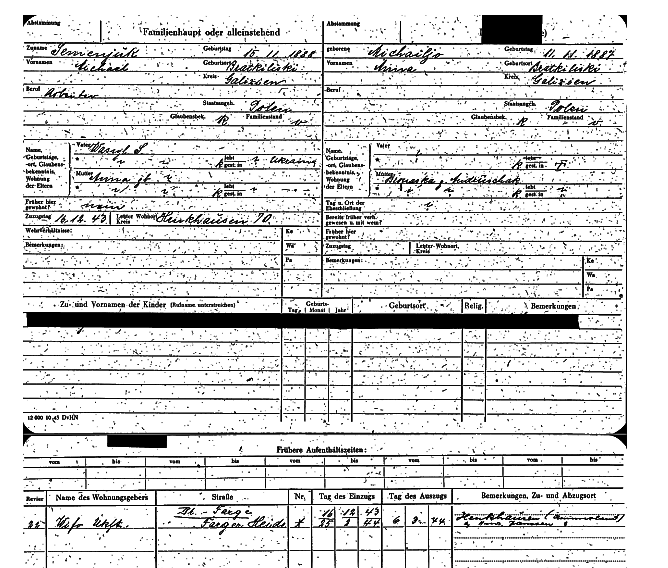 Abstammung
Familienhaupt oder alleinstehend
Abstammung
Zuname Semenjuk Geburtstag 15. 11. 1888
geborene Michailjo Geburtstag 11. 11. 1887
Vornamen Michael Geburtsort Bratkiliski
Vornamen Anna Geburtsort Bratkiliski
Kreis Galizien
Kreis Galizien
Beruf Arbeiter
Beruf
Staatsangeh. Polen
Staatsangeh. Polen
Glaubensbek. R Familienstand v
Glaubensbek. R Familienstand v
Name, Geburtstag, -ort, Glaubens- bekenntnis, Wohnung der Eltern
Vater Wasyl S
lebt gest. in Ukraina
Mutter Anna
lebt gest. in
Name, Geburtstag, -ort, Glaubens- bekenntnis, Wohnung der Eltern
Vater
lebt gest. in
Mutter
lebt gest. in
Früher hier gewohnt? nein
Tag u. Ort der Eheschließung
Zuzugstag 16. 12. 43 Letzter Wohnort Kreis Henkhausen 70.
Bereits früher verh. gewesen u. mit wem?
Wehrverhältnisse: Ka
Früher hier gewohnt?
Wa
Zuzugstag Letzter Wohnort. Kreis
Bemerkungen: Pa
Bemerkungen: Ka
Wa
Pa
Zu- und Vornamen der Kinder (Rufname unterstreichen) Geburts- Tag Monat Jahr Geburtsort Relig. Bemerkungen
12 000 10. 43 DvHN
Frühere Aufenthaltszeiten:
vom bis vom bis vom bis vom bis
Revier Name des Wohnungsgebers Straße Nr. Tag des Einzugs Tag des Auszugs Bemerkungen, Zu- und Abzugsort
Bl. - Farge 16 12 43
25 Wifo Farger Heide 25 2 44 6 3 44 Henkhausen